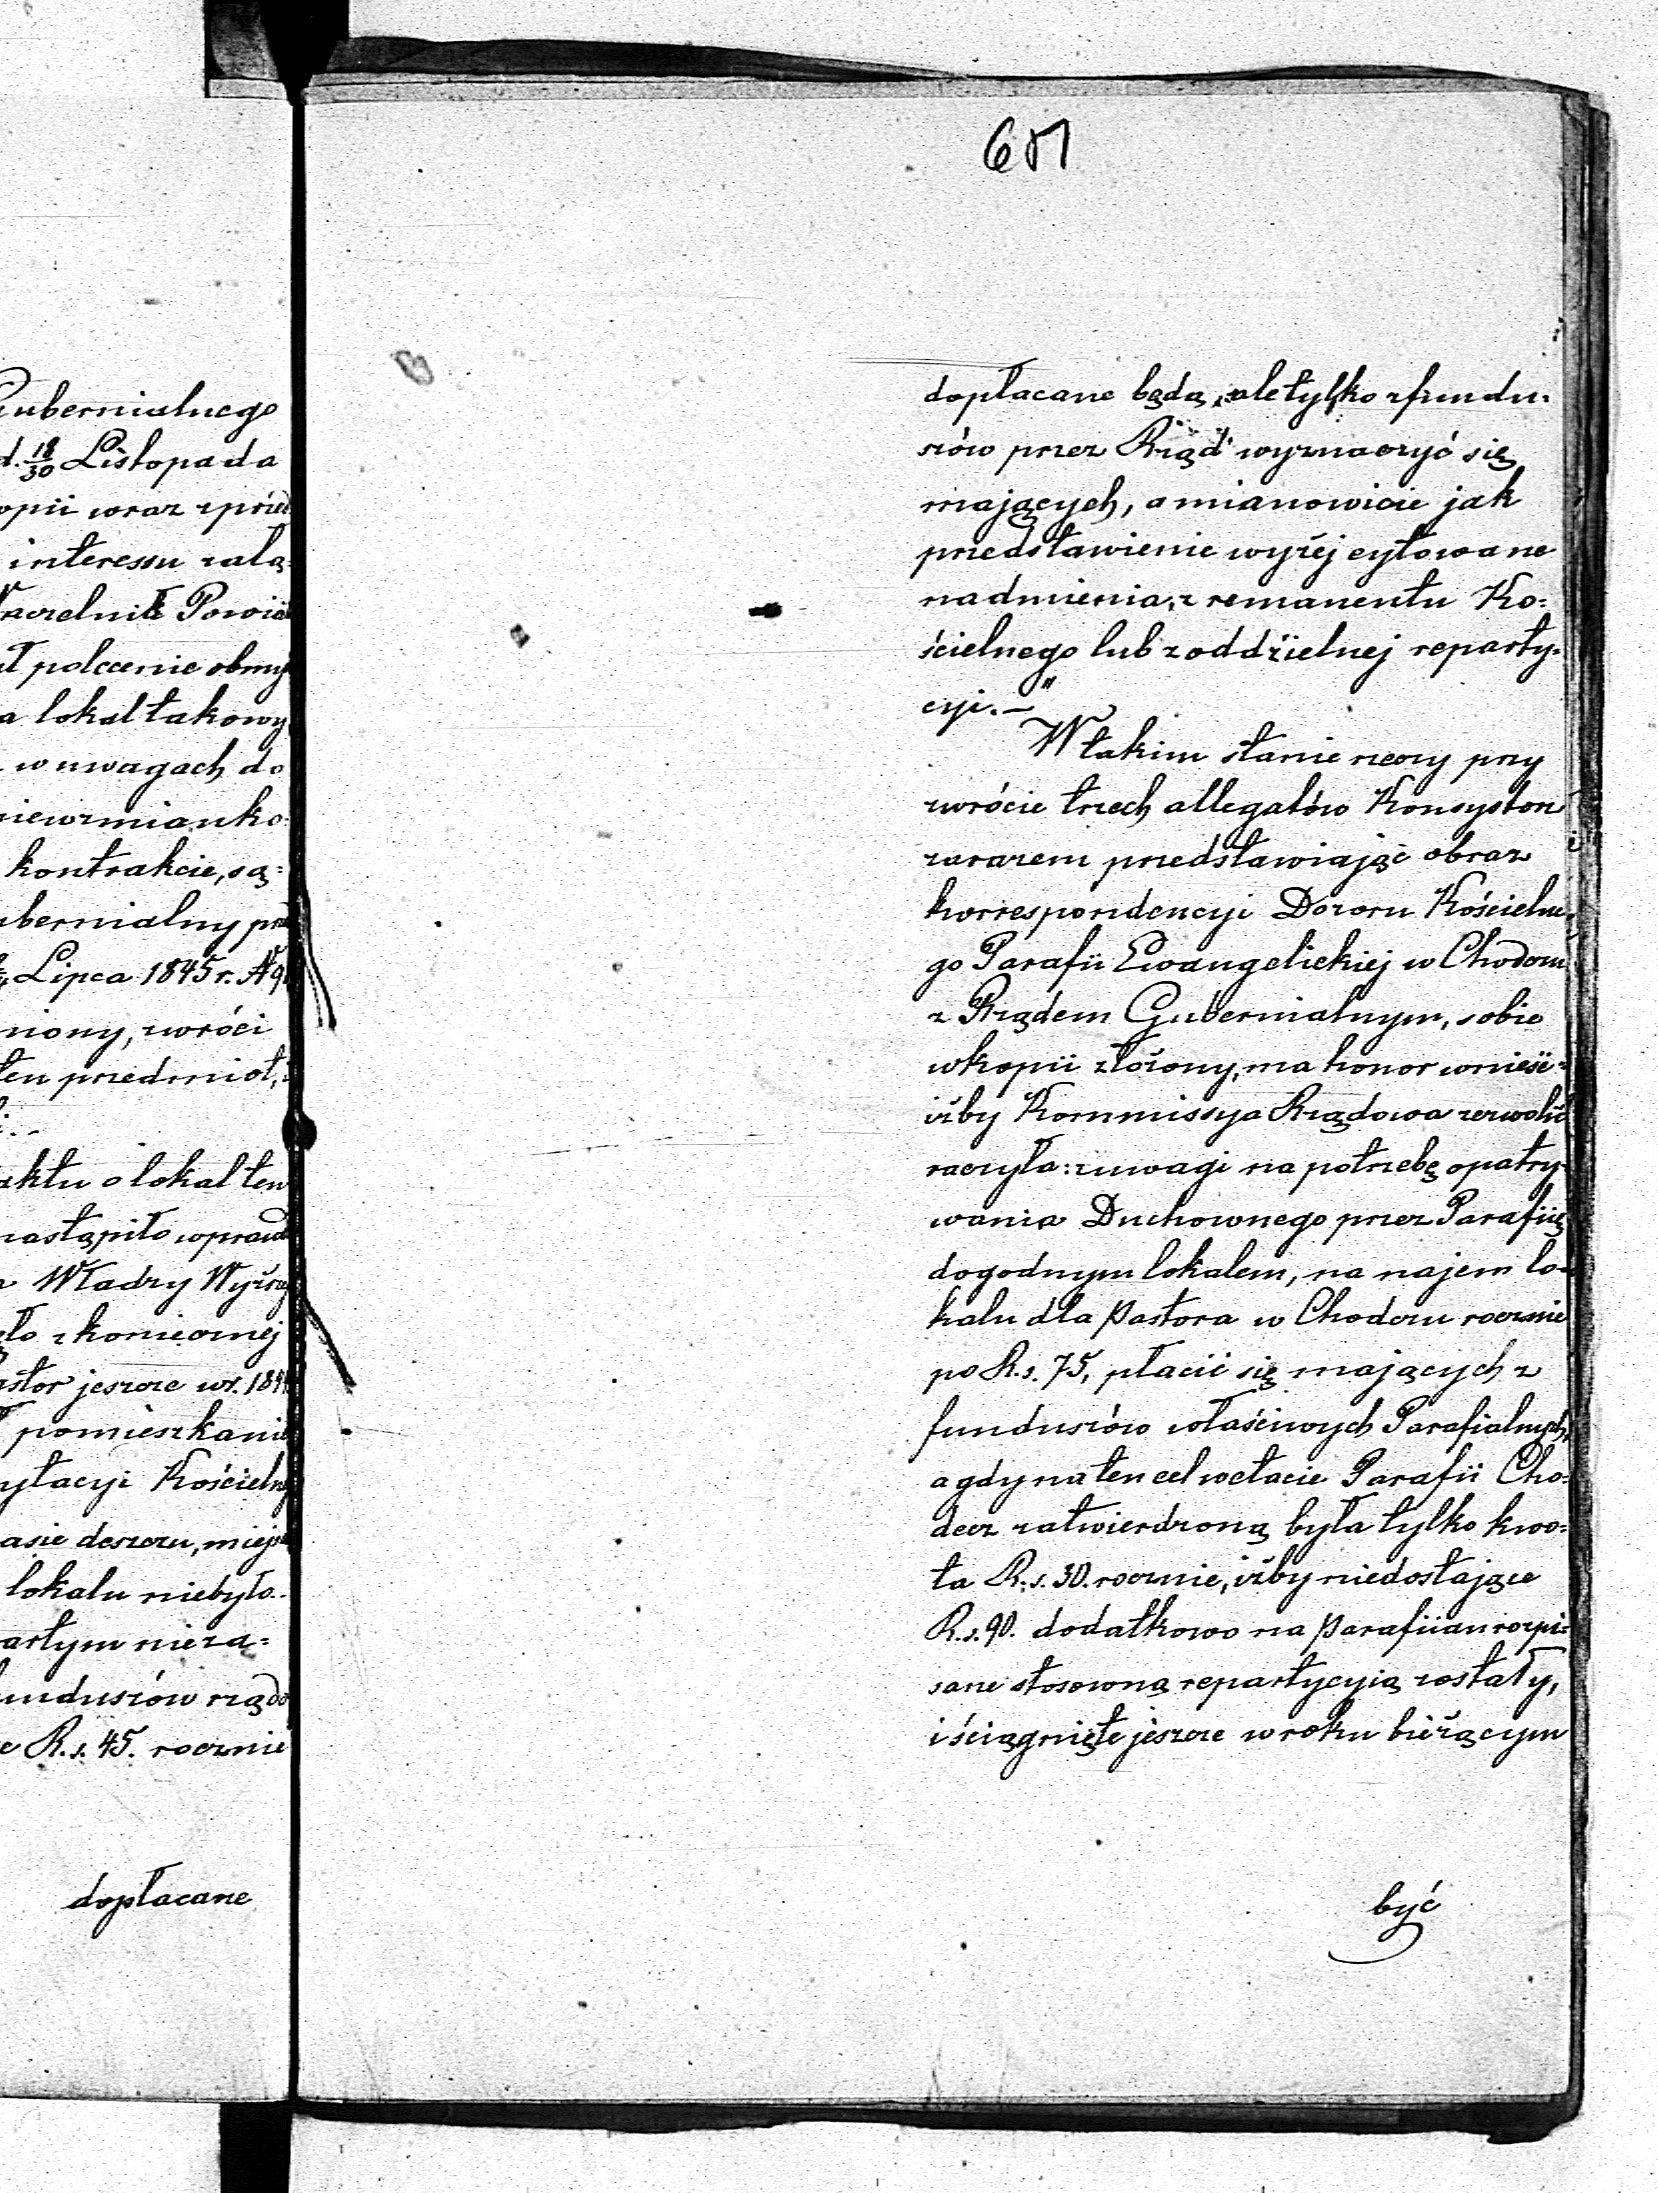 Gubernialnego
d. 18/30 Listopada
opii wraz z przed
interessu załą=
Naczelnik Powia
ał polecenie obmy
a lokal takowy
w uwagach do
niewzmianko=
kontrakcie, są=
ubernialny prz
Lipca 1845 r. N 9
niony, zwróci
ten przedmiot,
i.-
aktu o lokal ten
nastąpiło wprawd
Władzy Wyższ
ęło z koniecznej
astor jeszcze w r. 184
pomieszkanie
ytacyi Kościelny
asie deszczu, miejs
lokalu niebyło.
artym nieza=
unduszów rządo
e R.s. 45. rocznie
dopłacane
601
dopłacane będą, ale tylko z fundu=
szów przez Rząd wyznaczyć się
mających, a mianowicie jak
przedstawienie wyżéj cytowane
nadmienia, z remanentu Ko=
ścielnego lub z oddzielnej reparty=
cyi.-"
W takim stanie rzeczy przy
zwrócie trzech allegatów Konsystorz
zarazem przedstawiając obraz
korrespondencyi Dozoru Kościelne,
go Parafii Ewangelickiej w Chodczu
z Rządem Gubernialnym, sobie
w kopii złożony, ma honor wnieść=
iżby Kommissya Rządowa zezwolić
raczyła: z uwagi na potrzebę opatry=
wania Duchownego przez Parafiię
dogodnym lokalem, na najem lo=
kalu dla Pastora w Chodczu rocznie
po R.s. 75, płacić się mających z
funduszów właściwych Parafialnych,
a gdy na ten cel w etacie Parafii Cho=
decz zatwierdzoną była tylko kwo=
ta R.s. 30. rocznie, iżby niedostające
R.s. 90. dodatkowo na Parafiian rozpi=
sane stosowną repartycyią zostały,
i ściągnięte jeszcze w roku bieżącym
być